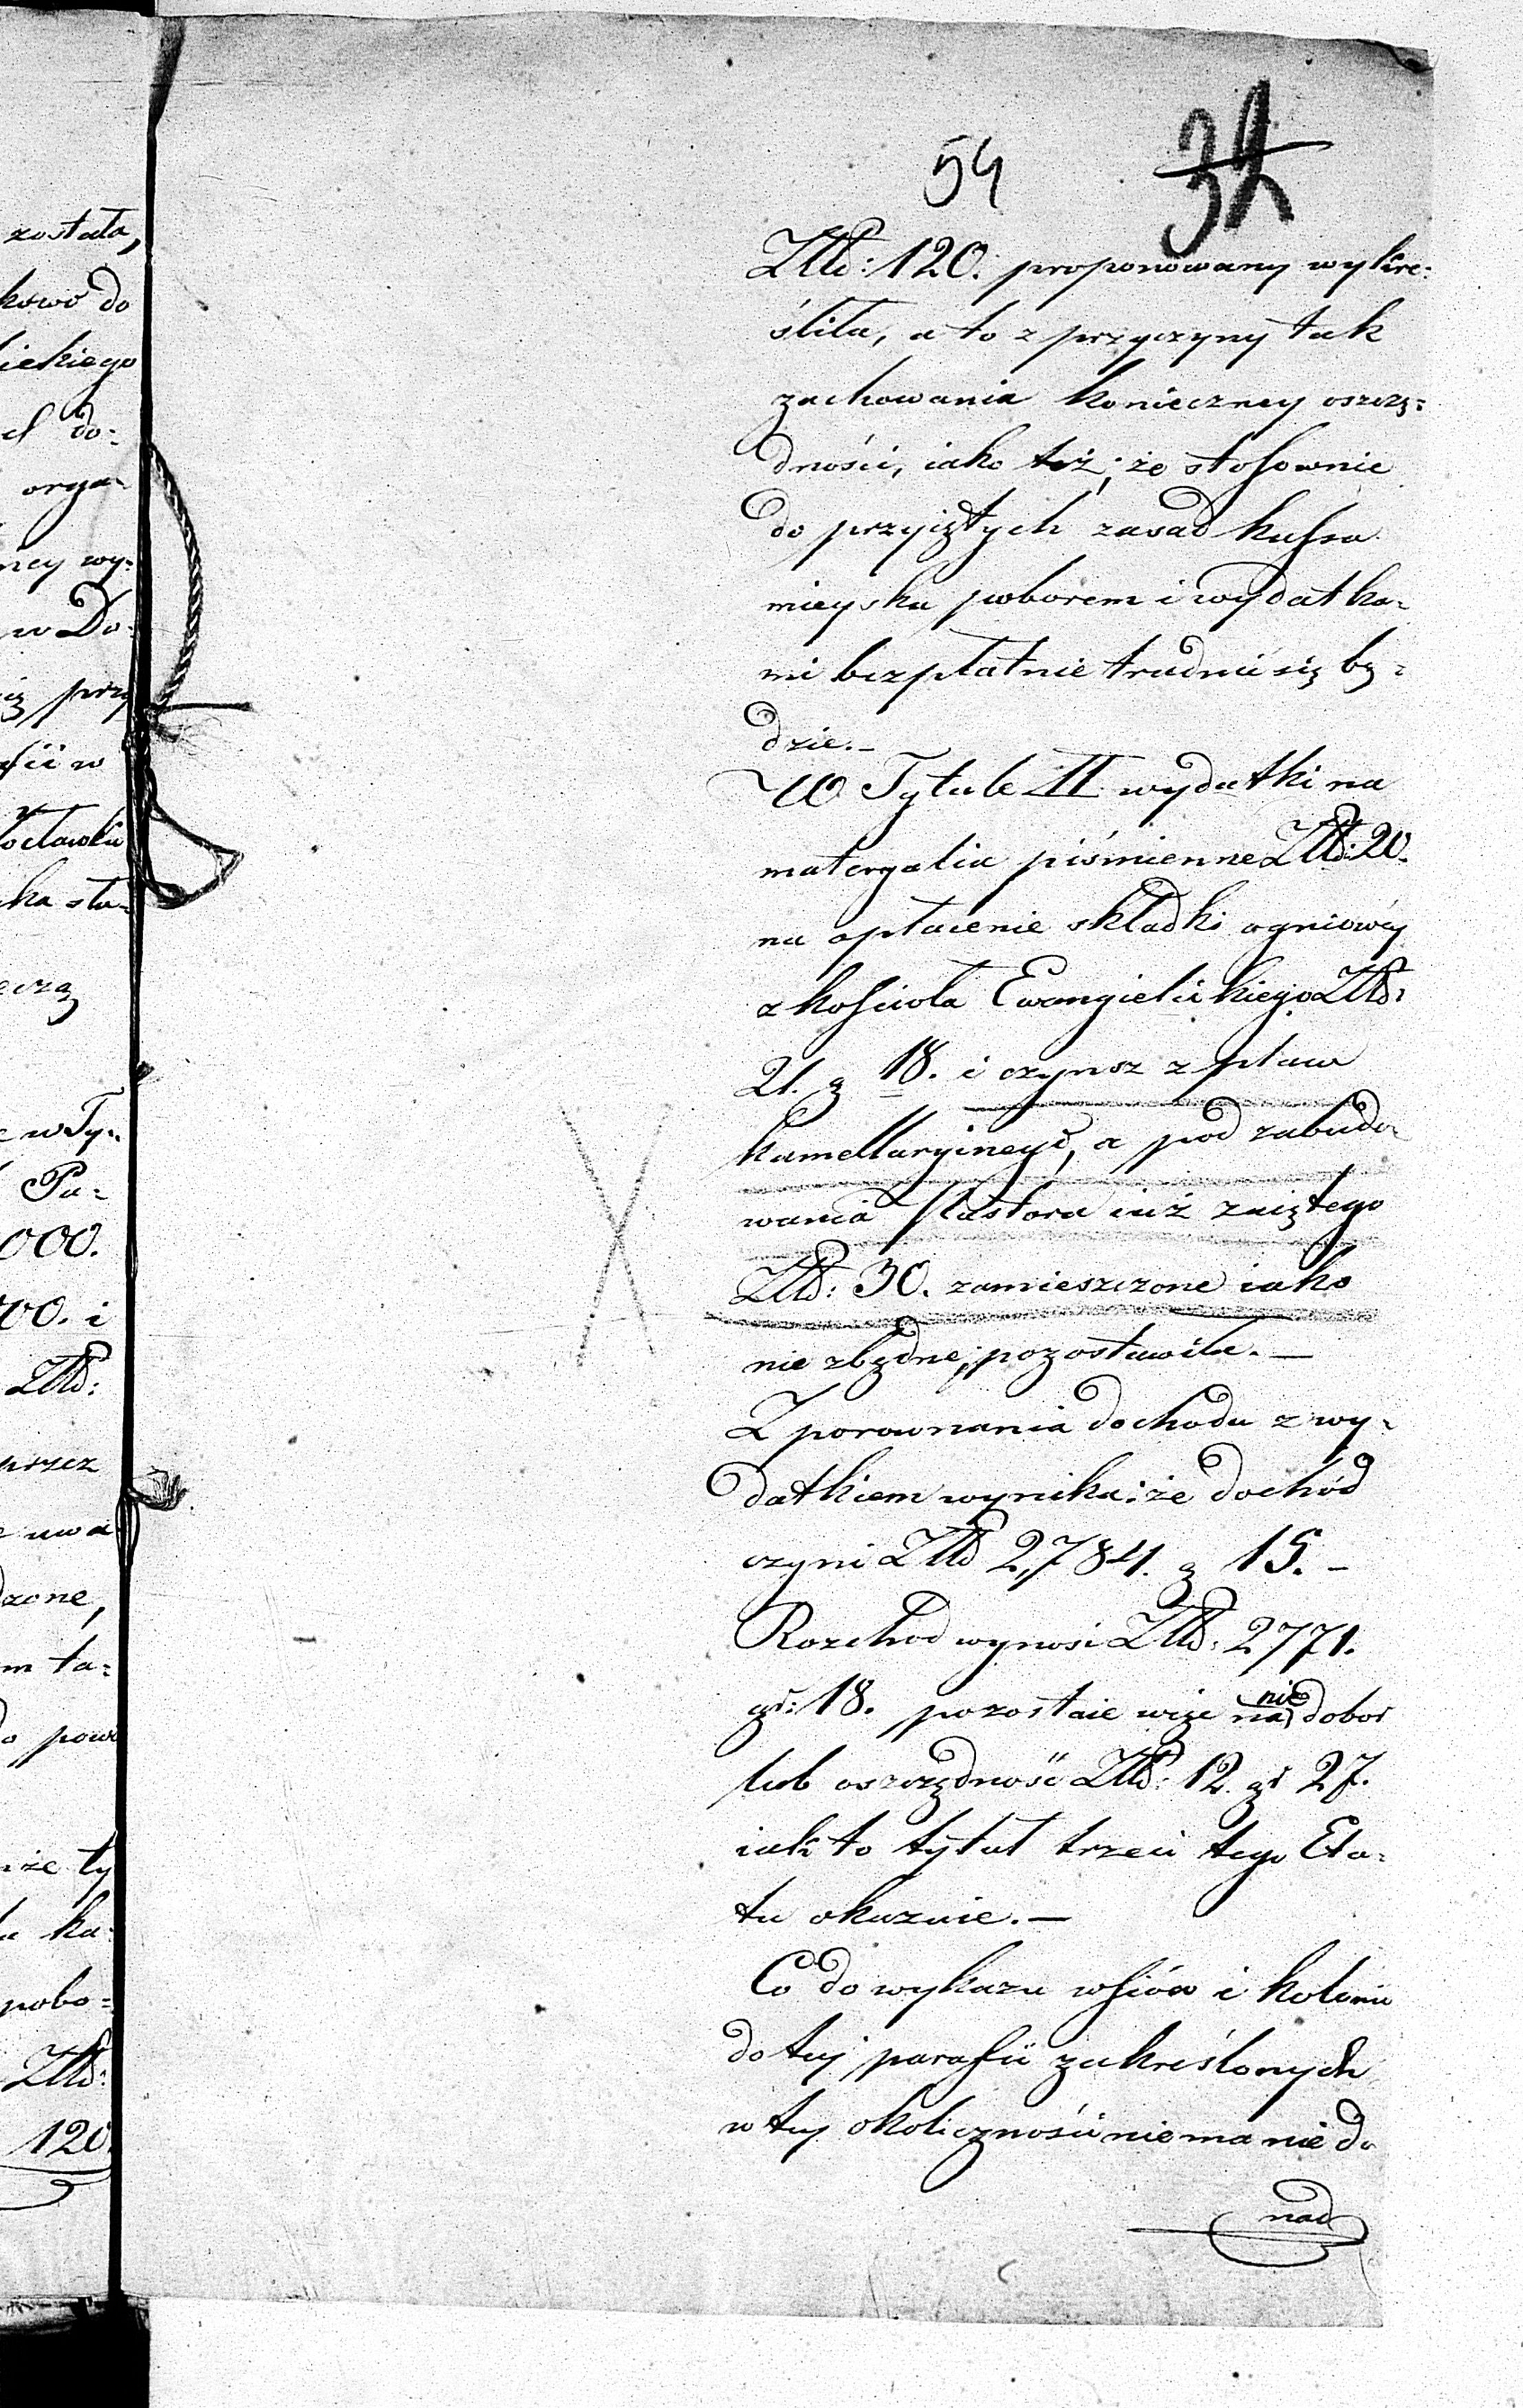 została,
kowo do
ickiego
do-
orga-
ney wy-
w Do-
przy
w
ocławku
ka sta-
w Ty-
Pa-
000.
00. i
Złł:
przez
uwa
dzone,
m ta-
do
że ty
ka-
pobo-
Złł:
120.
54 32
Złł: 120. proponowany wykre-
śliła, a to z przyczyny tak
zachowania konieczney oszczę-
dności, iako też; że stosownie
do przyiętych zasad kassa
mieyska poborem i wydatka-
mi bezpłatnie trudnić się bę-
dzie.-
W Tytule II wydatki na
materyalia piśmienne Złł: 20.
na opłacenie składki ogniowéy
z kościoła Ewangielickiego Złł:
21. g 18. i czynsz z placu
kamellaryineyo, a pod zabudo-
wania Pastora iuż zaiętego
Złł: 30. zamieszczone iako
nie zbędne, pozostawiła.-
Z porownania dochodu z wy-
datkiem wynika: że dochód
czyni Złł 2,784. g 15.-
Rozchod wynosi Złł: 2771.
gr: 18. pozostaie więc na nie dobor
lub oszczędność Złł: 12. gr 27.
iak to tytuł trzeci tego Eta-
tu okazuie.-
Co do wykazu wsiów i kolonii
do tej parafii zakreślonych
w tej okoliczności niema nic do
nad